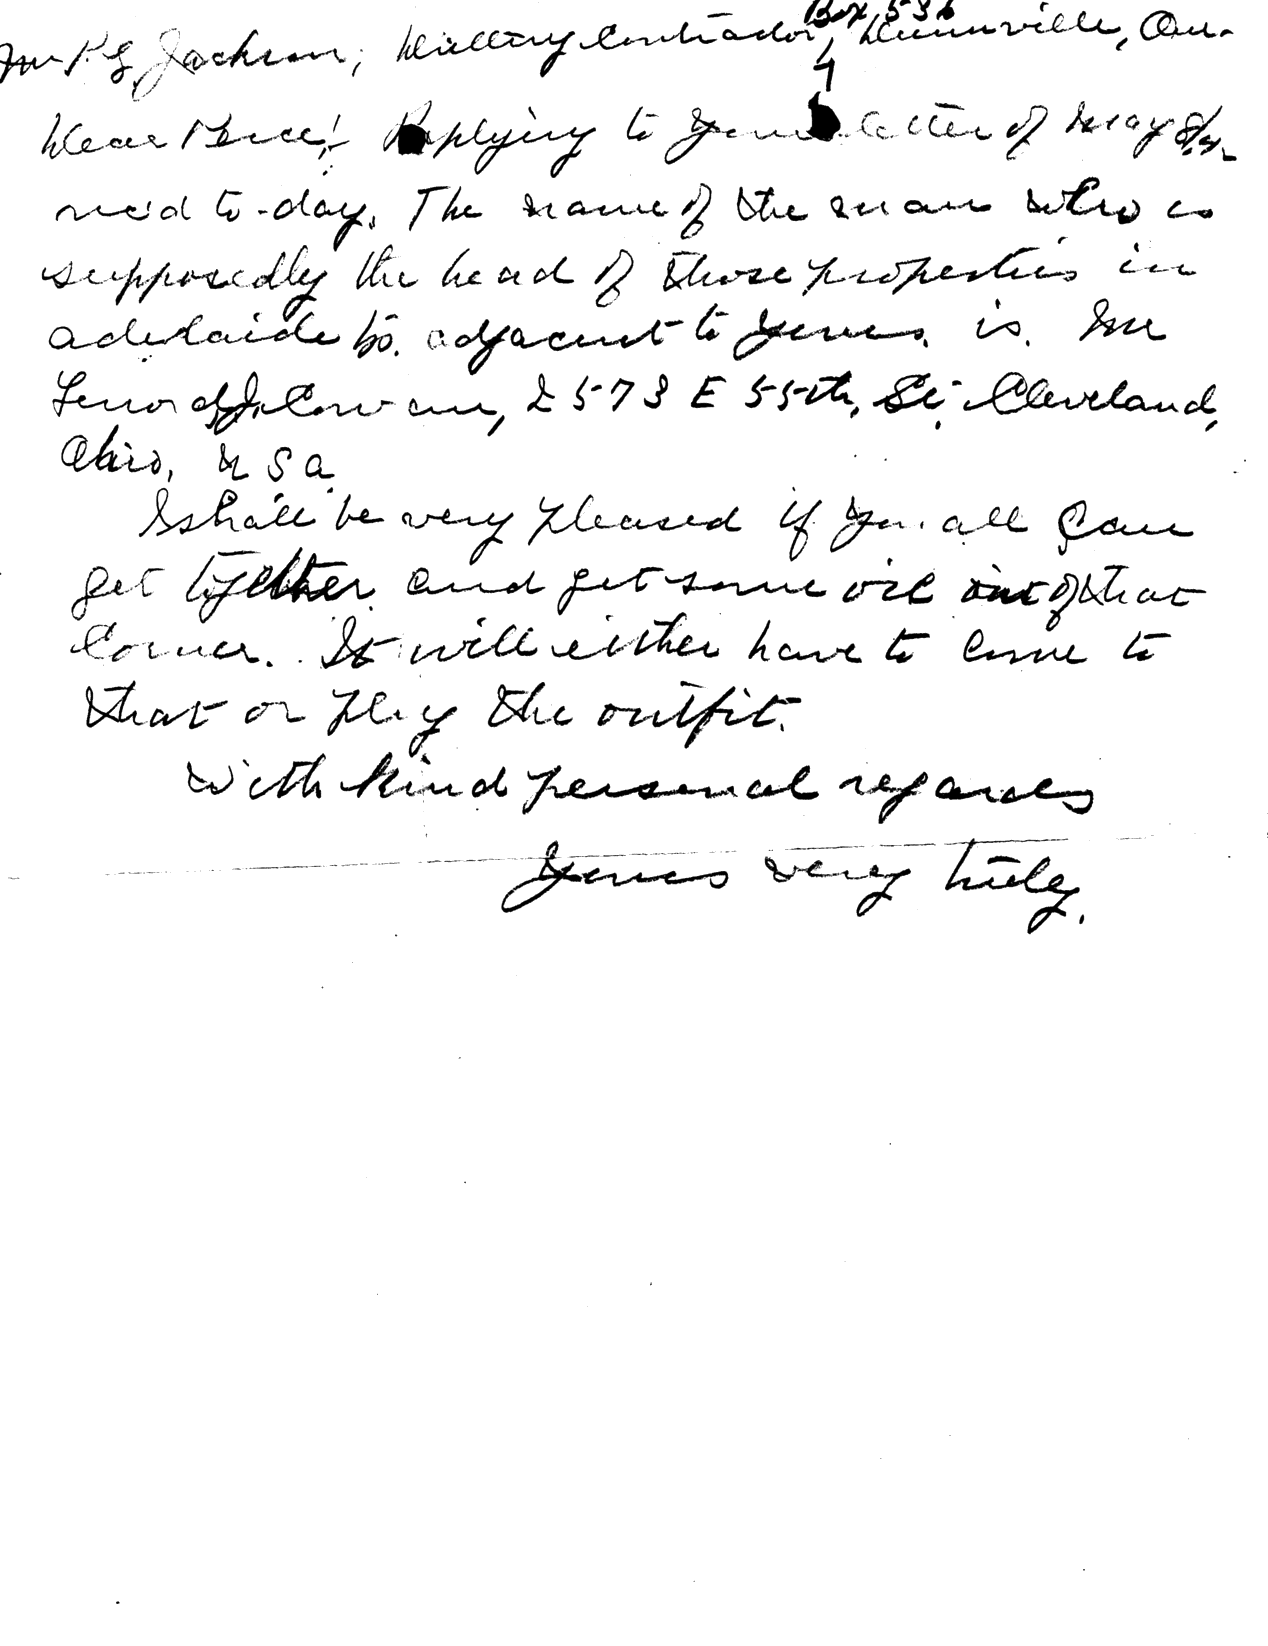 Mr P. G. Jackson, Drilling Contractor, Box 536 Dunnville, Ont.
Dear Perce:- Replying to your letter of May 8/42
rec'd to-day. The name of the man who is
supposedly the head of those properties in
Adelaide Tp. adjacent to yours is Mr
J. Cowan, 2573 E 55th, St, Cleveland,
Ohio, U S A.
I shall be very pleased if you all can
get together and get some oil out of that
Corner. It will either have to come to
that or plug the outfit.
With kind personal regards
Yours very truly.